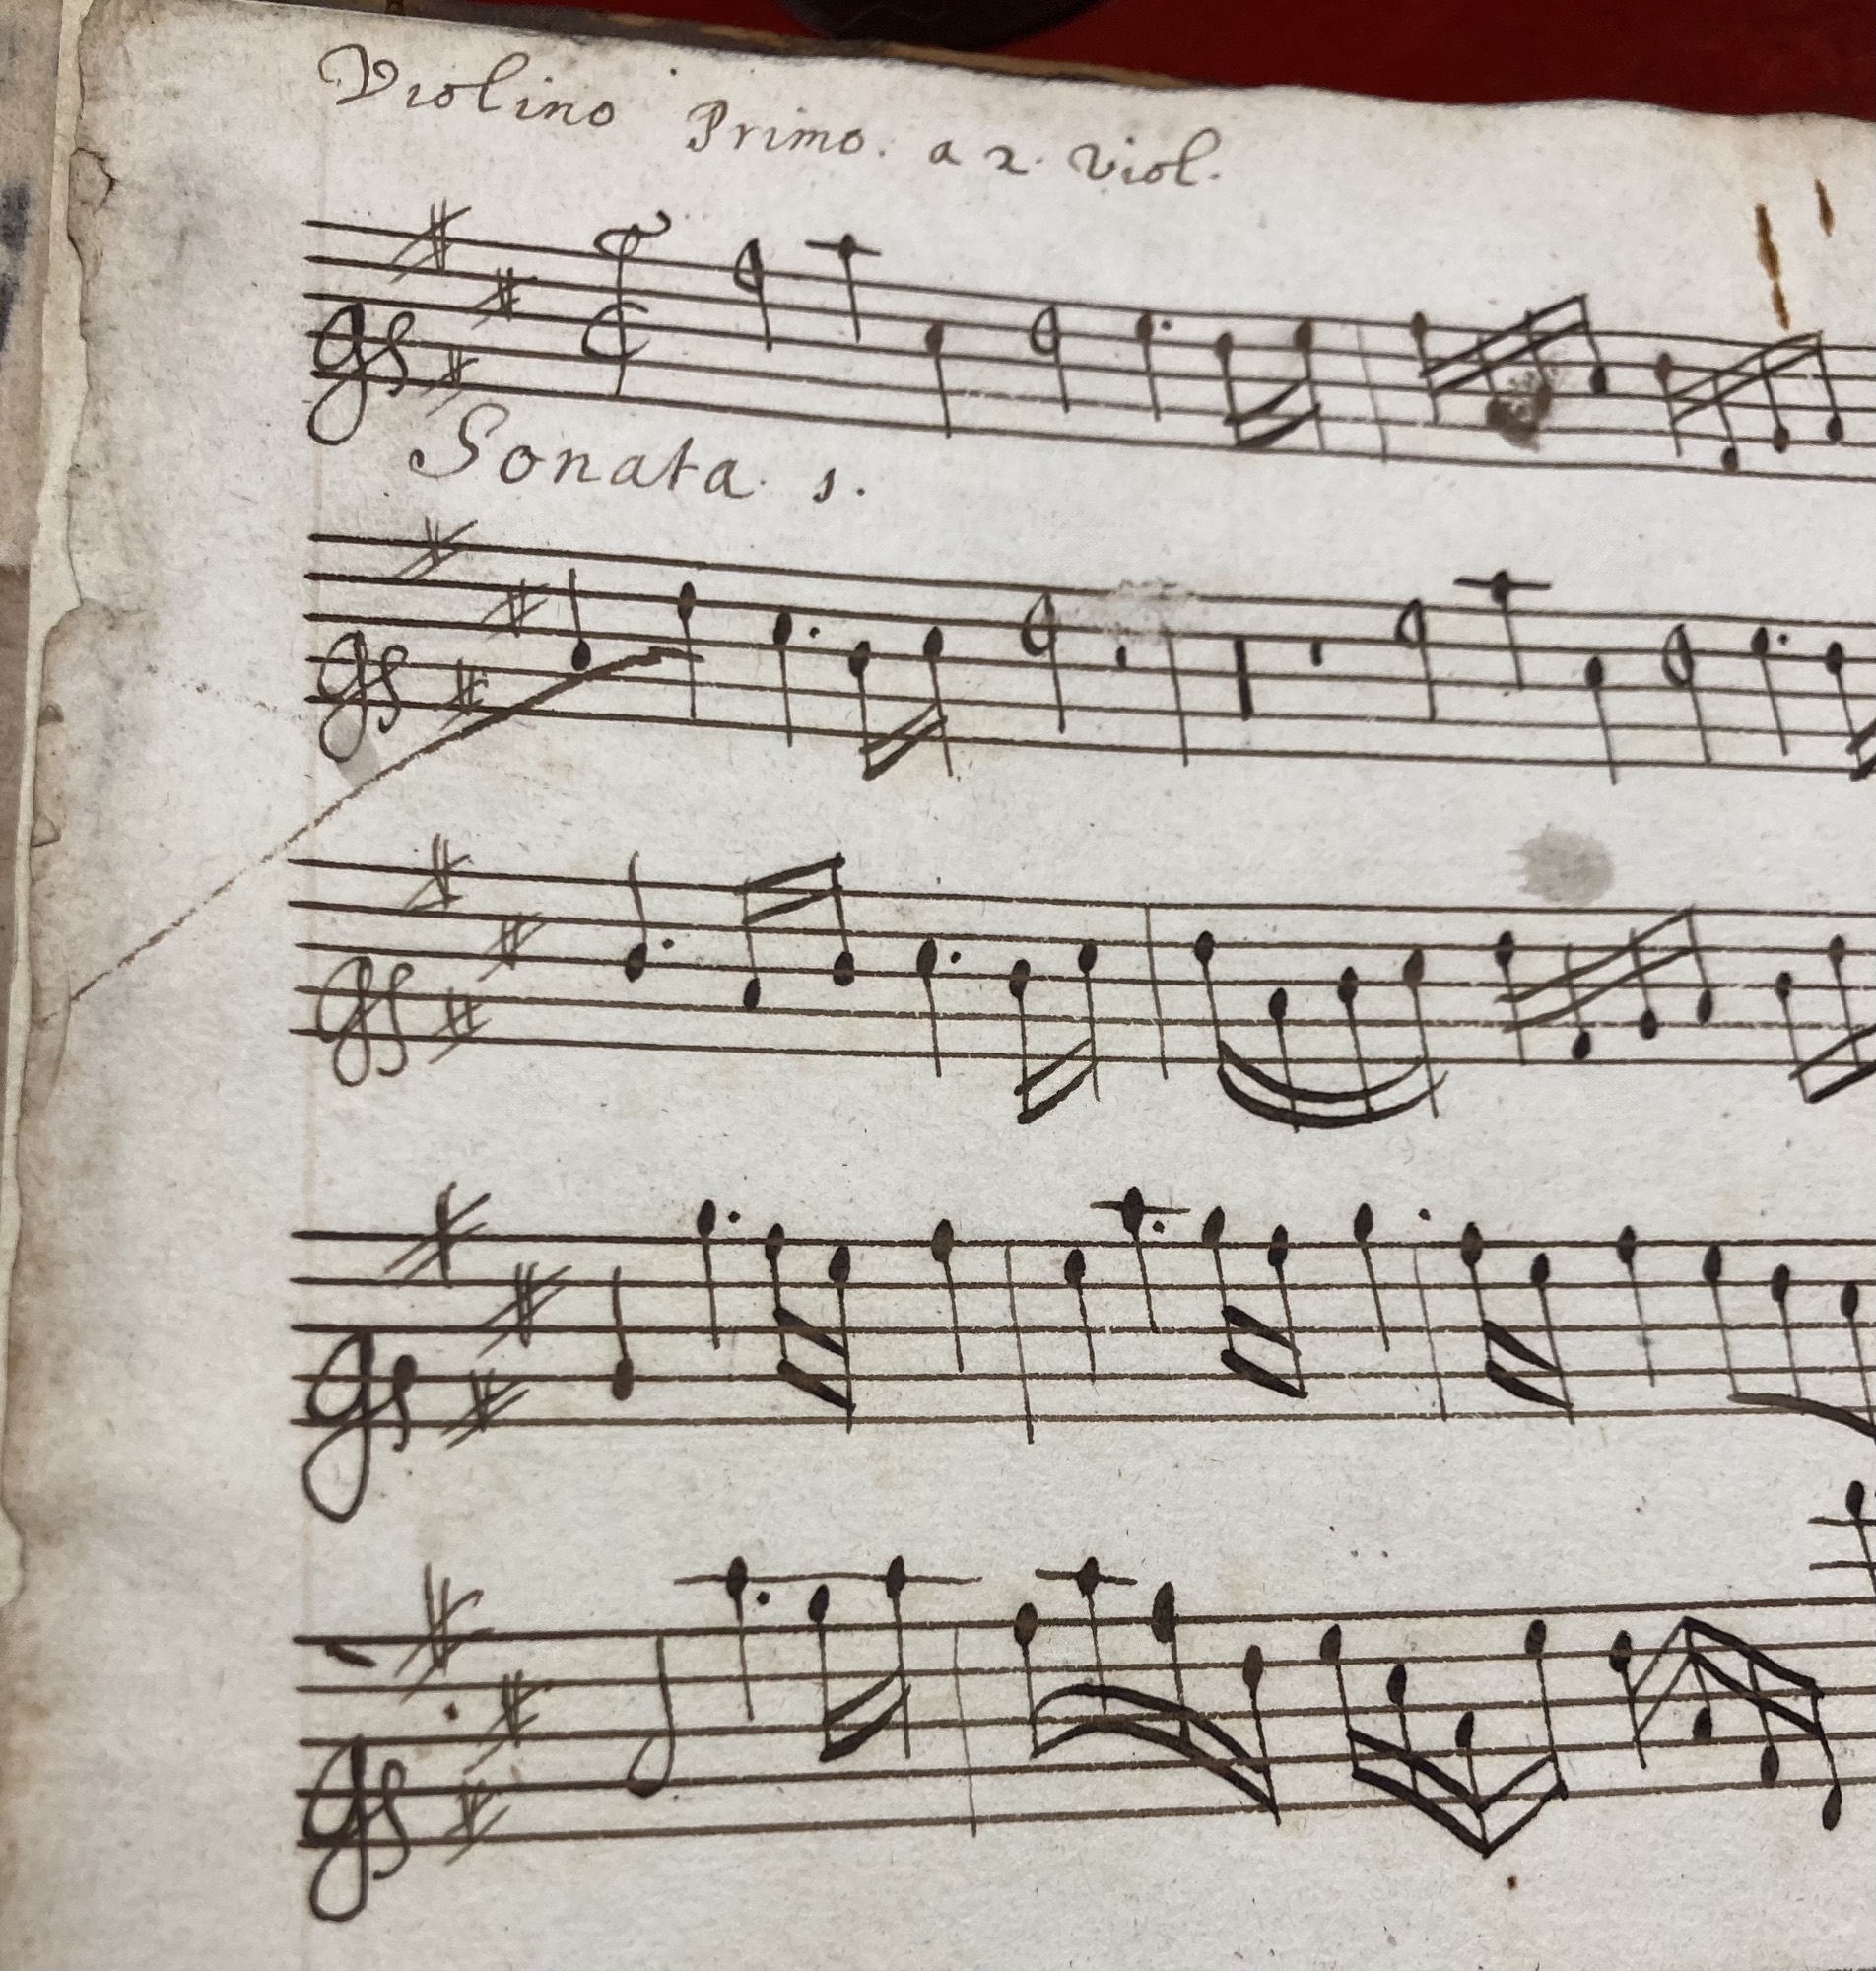 Violino Primo. a 2. Viol.
Sonata 1.